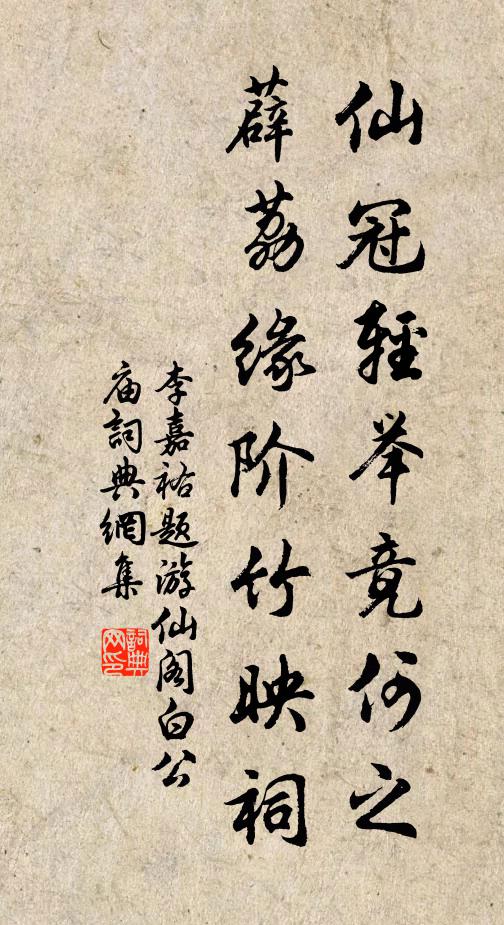 仙冠輕举竟何之
薜荔缘阶竹映祠
李嘉祐题游仙阁白公
庙詞典網集
詞典网印